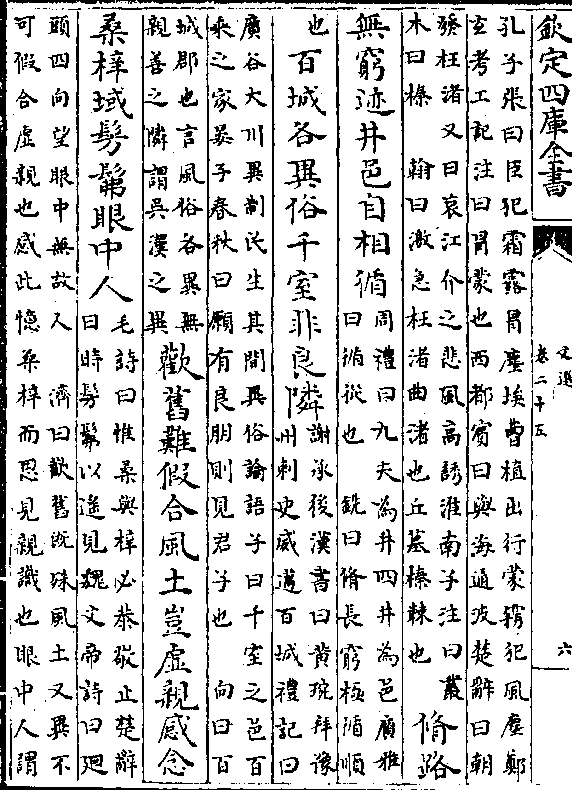 欽定四庫全書
文選
卷二十五
六
孔子張曰臣犯霜露冒塵埃曹植出行蒙霧犯風塵鄭
玄考工記注曰冒蒙也西都賓曰與海通波楚辭曰朝
發枉渚又曰哀江介之悲風高誘淮南子注曰叢
木曰榛 翰曰激急枉渚曲渚也丘墓榛棘也
脩路
無窮迹井邑自相循
周禮曰九夫為井四井為邑廣雅
曰循從也 銑曰脩長窮極循順
也
百城各異俗千室非良隣
謝承後漢書曰黄琬拜豫
州刺史威邁百城禮記曰
廣谷大川異制民生其間異俗論語子曰千室之邑百
乘之家晏子春秋曰願有良朋則見君子也 向曰百
城郡也言風俗各異無
親善之隣謂吳漢之異
歡舊難假合風土豈虚親感念
桑梓域髣髴眼中人
毛詩曰惟桑與梓必恭敬止楚辭
曰時髣髴以遥見魏文帝詩曰廻
頭四向望眼中無故人 濟曰歡舊既殊風土又異不
可假合虚親也感此憶桑梓而思見親識也眼中人謂